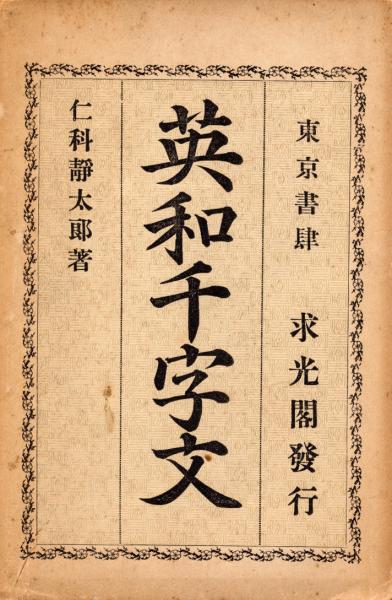 東京書肆 求光閣發行
英和千字文
仁科靜太郎著